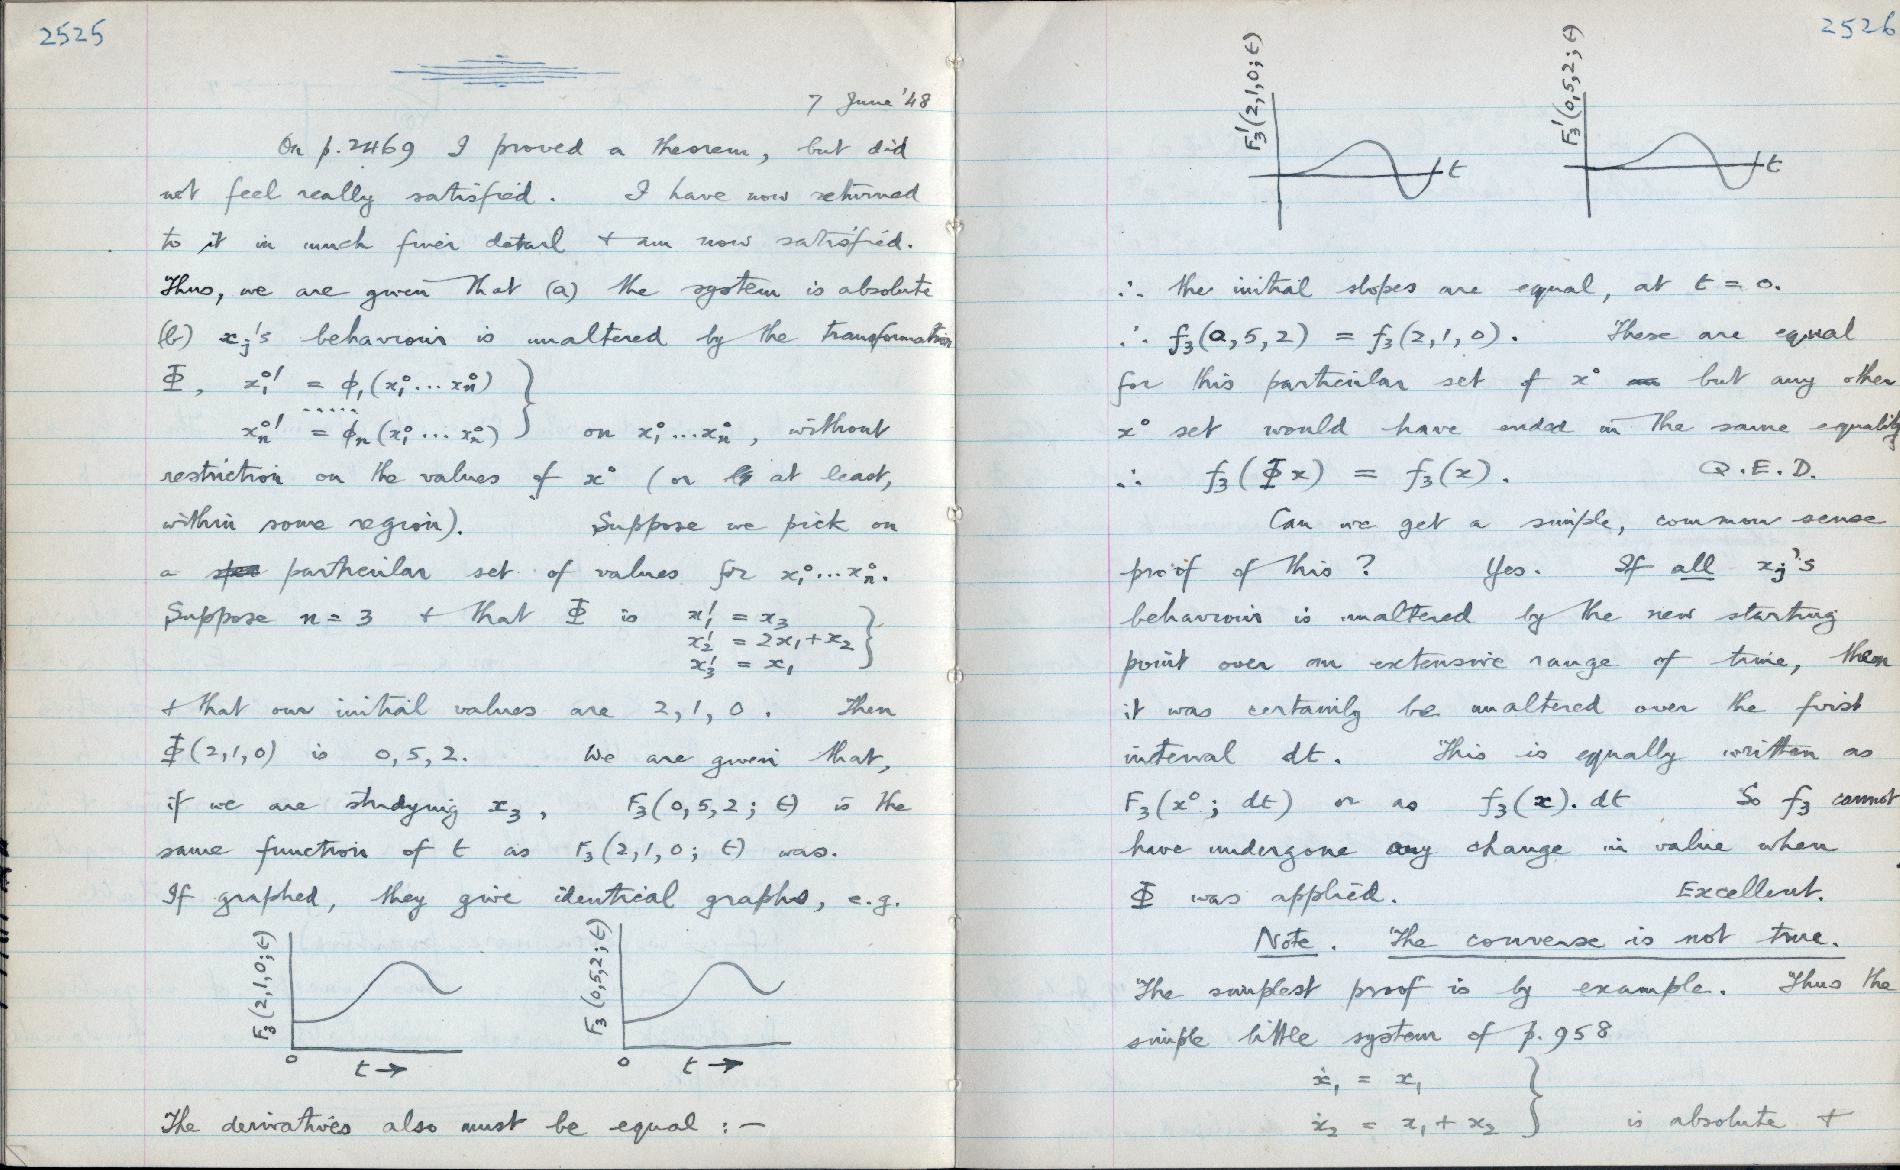 2525
7 June '48
On p.2469 I proved a theorem, but did
not feel really satisfied. I have now returned
to it in much finer detail + am now satisfied.
Thus, we are given that (a) the system is absolute
(b) xⱼ's behaviour is unaltered by the transformation
Φ, x₁°' = ϕ₁(x₁°...xₙ°) }
.....
xₙ°' = ϕₙ(x₁°...xₙ°) } on x₁°...xₙ°, without
restriction on the values of x° (or at least,
within some region). Suppose we pick on
a particular set of values for x₁°...xₙ°.
Suppose n = 3 + that Φ is x₁' = x₃ }
x₂' = 2x₁ + x₂
x₃' = x₁
+ that our initial values are 2, 1, 0. Then
Φ(2,1,0) is 0, 5, 2. We are given that,
if we are studying x₃, F₃(0,5,2; t) is the
same function of t as F₃(2,1,0; t) was.
If graphed, they give identical graphs, e.g.
F₃(2,1,0;t)
0
t →
F₃(0,5,2;t)
0
t →
The derivatives also must be equal :—
2526
F₃'(2,1,0;t)
t
F₃'(0,5,2;t)
t
∴ the initial slopes are equal, at t = 0.
∴ f₃(0,5,2) = f₃(2,1,0). These are equal
for this particular set of x° but any other
x° set would have ended in the same equality
∴ f₃(Φx) = f₃(x). Q.E.D.
Can we get a simple, common sense
proof of this? Yes. If all xⱼ's
behaviour is unaltered by the new starting
point over an extensive range of time, then
it was certainly be unaltered over the first
interval dt. This is equally written as
F₃(x°; dt) or as f₃(x).dt So f₃ cannot
have undergone any change in value when
Φ was applied. Excellent.
Note. The converse is not true.
The simplest proof is by example. Thus the
simple little system of p.958
ẋ₁ = x₁ }
ẋ₂ = x₁ + x₂ } is absolute +